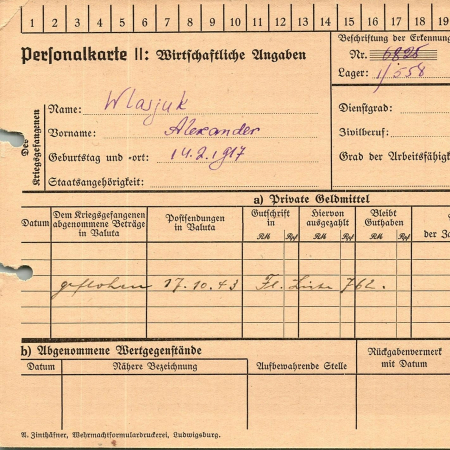 1 2 3 4 5 6 7 8 9 10 11 12 13 14 15 16 17 18 19
Personalkarte II: Wirtschaftliche Angaben
Beschriftung der Erkennung
Nr. 6825
Lager: 1/558
Des Kriegsgefangenen
Name: Wlasjuk
Vorname: Alexander
Geburtstag und -ort: 14.2.1917
Staatsangehörigkeit:
Dienstgrad:
Zivilberuf:
Grad der Arbeitsfähigk
a) Private Geldmittel
Datum
Dem Kriegsgefangenen abgenommene Beträge in Valuta
Postsendungen in Valuta
Gutschrift in
RM Rpf
Hiervon ausgezahlt
RM Rpf
Bleibt Guthaben
RM Rpf
der Za
geflohen 17.10.43 Fl. Liste 762.
b) Abgenommene Wertgegenstände
Datum
Nähere Bezeichnung
Aufbewahrende Stelle
Rückgabenvermerk mit Datum
A. Zinthäfner, Wehrmachtformulardruckerei, Ludwigsburg.